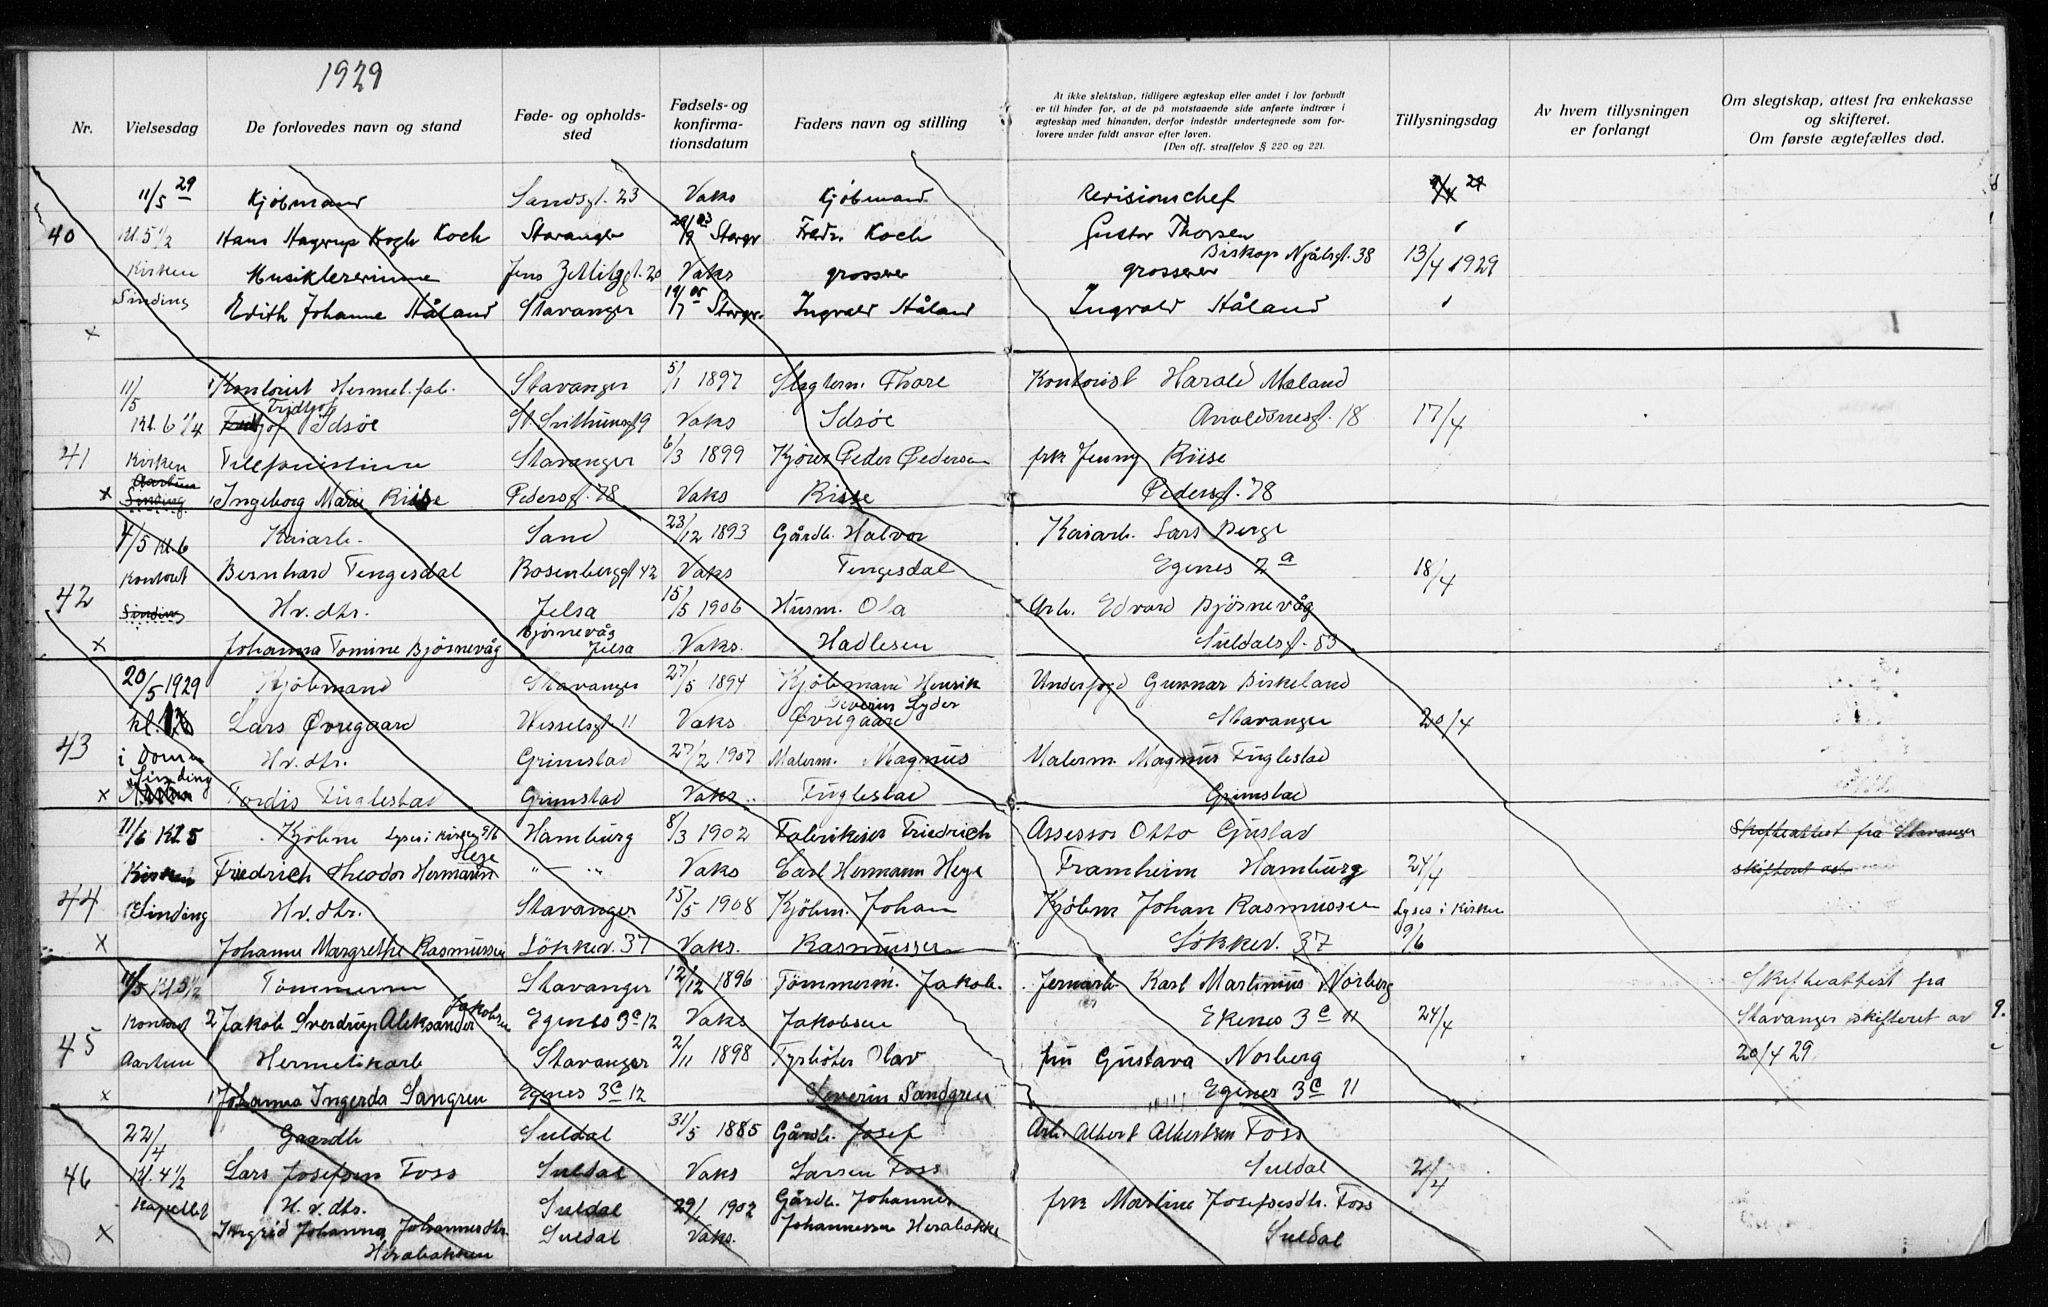 1929
Nr.
Vielsesdag
De forlovedes navn og stand
Føde- og opholds-
sted
Fødsels- og
konfirma-
tionsdatum
Faders navn og stilling
At ikke slektskap, tidligere ægteskap eller andet i lov forbudt
er til hinder for, at de på motstaaende side anførte indtrær i
ægteskap med hinanden, derfor indestår undertegnede som for-
lovere under fuldt ansvar efter loven.
(Den off. straffelov § 220 og 221.
Tillysningsdag
Av hvem tillysningen
er forlangt
Om slegtskap, attest fra enkekasse
og skifteret.
Om første ægtefælles død.
11/5 29 Kjøbmand Sandsgt. 23 Vaks Kjøbmand Revisionschef
40 Kl. 5 1/2 Hans Hagerup Krogh Koch Stavanger Fredr. Koch Gustav Thorsen
Biskop Njålsgt. 38
Kirken Musiklærerinne Vaks grosserer grosserer 13/4 1929
Sinding Edith Johanne Håland Stavanger Ingvald Håland Ingvald Håland
x
11/5 Kontorist Hermet.fab. Stavanger 5/1 1897 Slagterm. Thore Kontorist Harald Maland
Fridtjof
Kl. 6 1/4 Idsøe St. Svithunsgt 9 Vaks Idsøe Arnoldsnesgt. 18 17/4
41 Kirken Telefonistinne Stavanger 6/3 1899 Kjører Peder Pedersen frk Jenny Riise
Aartun
x Sinding Ingeborg Marie Riise Pedersgt. 78 Vaks Riise Pedersgt. 78
4/5 kl 6 Kaiarb. Sand 23/12 1893 Gårdb. Halvor Kaiarb. Lars Berge
Kontoret Bernhard Tengesdal Rosenberggt 42 Vaks Tengesdal Egenes 2 a 18/4
42 Sinding Hv. dtr. Jelsa 15/5 1906 Husm. Ola Arb. Edvard Bjørnevåg
Bjørnevåg
x Johanna Tomine Bjørnevåg Jelsa Vaks. Hadlesen Suldalsgt. 83
20/5 1929 Kjøbmand Stavanger 27/5 1894 Kjøbmand Henrik Underfogd Gunnar Birkeland
Severin Lyder
kl. Lars Øvregaard Wesselsgt 11 Vaks Øvregaard Stavanger 20/4
43 i Domen Hv. dtr. Grimstad 27/2 1907 Malerm. Magnus Malerm. Magnus Fuglestad
Sinding
x Tordis Fuglestad Grimstad Vaks. Fuglestad Grimstad
11/6 Kl 5 Kjøbm Lyses i kirken 9/6 Hamburg 8/3 1902 Fabrikeier Friedrich Assessor Otto Gustav Skifteattest fra Stavanger
Heye
Kirken Friedrich Theodor Hermann - " - Vaks Carl Hermann Heye Framheim Hamburg 24/4 skifteret av
44 Sinding Hv. dtr. Stavanger 15/5 1908 Kjøbm. Johan Kjøbm Johan Rasmussen Lyses i Kirken
x Johanne Margrethe Rasmussen Løkkev. 37 Vaks. Rasmussen Løkkev. 37 9/6
11/5 Kl 5 1/2 Tømmerm Stavanger 12/12 1896 Tømmerm. Jakob. Jernarb. Karl Martinius Norberg Skifteattest fra
Jakobsen
Kontoret 2 Jakob Sverdrup Aleksander Egenes 3 c 12 Vaks Jakobsen Ekenes 3 c 11 24/4 Stavanger skifteret av
45 Aartun Hermetikarb Stavanger 2/11 1898 Fyrbøter Olav fru Gustava Norberg 20/4 29
x 1 Johanna Ingerda Sangren Egenes 3 c 12 Severin Sandgren Egenes 3 c 11
22/4 Gaardb Suldal 31/5 1885 Gårdb. Josef Arb. Albert Albertsen Foss
46 Kl. 4 1/2 Lars Josefsen Foss Suldal Vaks Larsen Foss Suldal 2/4
Kapellet H. v. dtr. Suldal 29/1 1902 Gårdb. Johannes frk Martine Josefsdtr. Foss
x Ingrid Johanna Johannesdtr. Suldal Vaks. Johannessen Herabakke Suldal
Herabakken